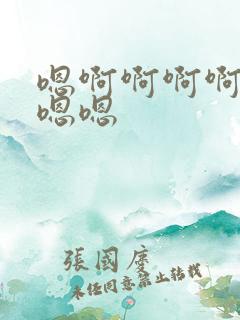 嗯啊啊啊啊
嗯嗯
張國庆
未经同意禁止转载